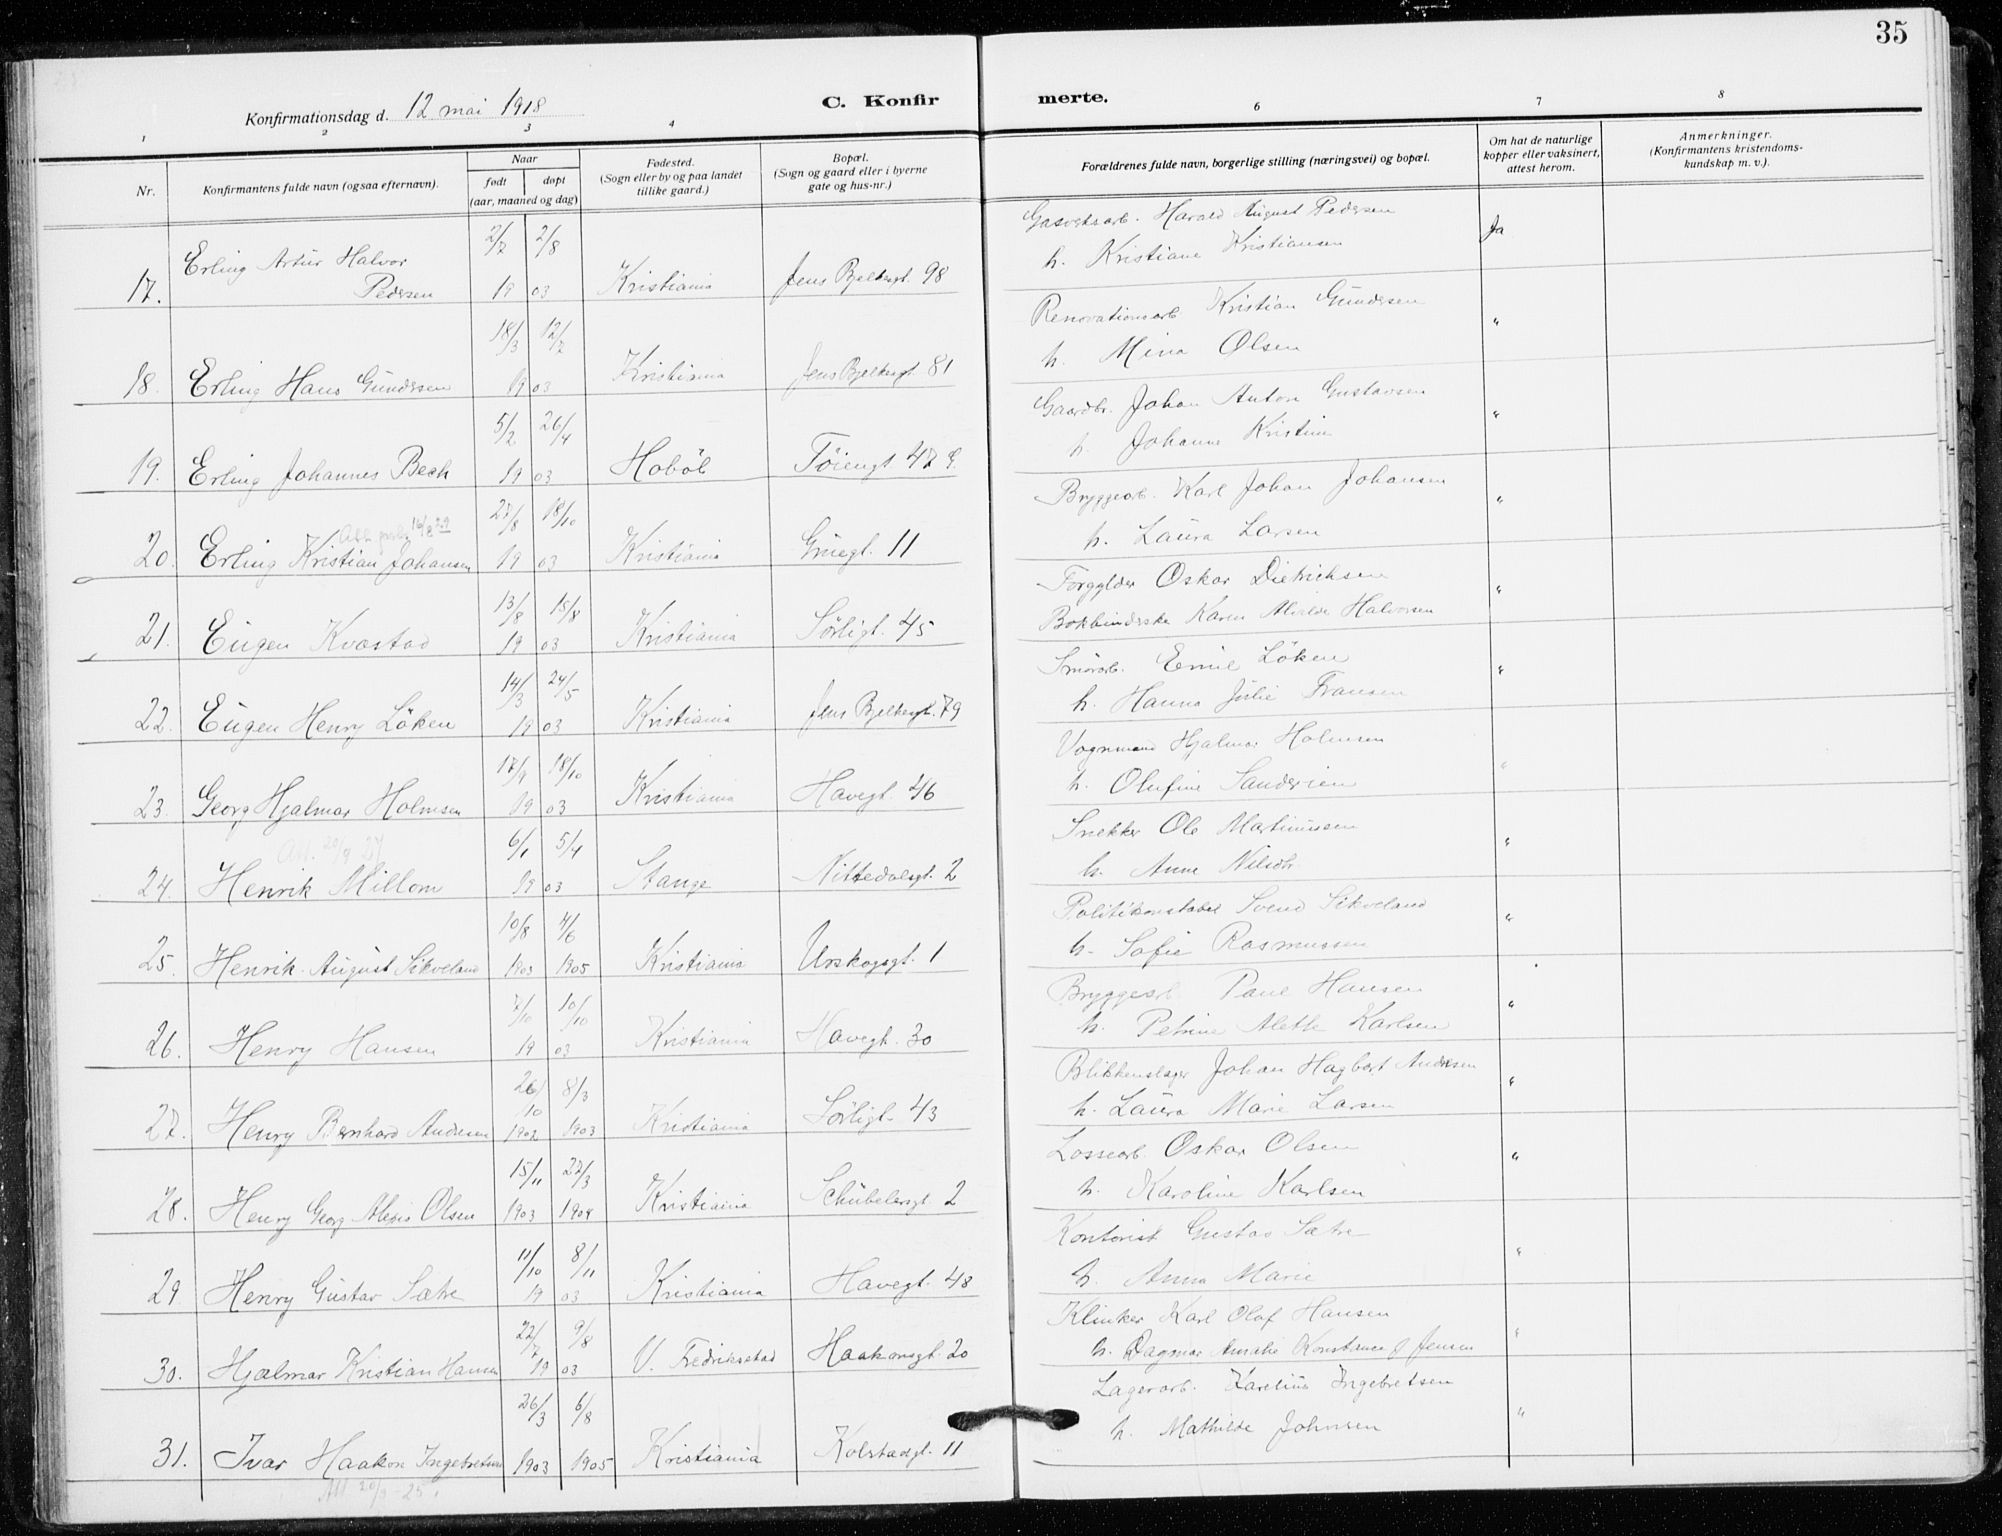 35
Konfirmationsdag d. 12 mai 1918
C. Konfirmerte.
1 2 3 4 6 7 8
Nr.
Konfirmantens fulde navn (ogsaa efternavn).
Naar
født døpt
(aar, maaned og dag)
Fødested.
(Sogn eller by og paa landet
tillike gaard.)
Bopæl.
(Sogn og gaard eller i byerne
gate og hus-nr.)
Forældrenes fulde navn, borgerlige stilling (næringsvei) og bopæl.
Om hat de naturlige
kopper eller vaksinert,
attest herom.
Anmerkninger.
(Konfirmantens kristendoms-
kundskap m. v.).
17. Erling Artur Halvor Pedersen 2/7 19 2/8 03 Kristiania Jens Bjelkesgt. 98
Gasverksarb. Harald August Pedersen Ja
h. Kristiane Kristiansen
18. Erling Hans Gundersen 18/3 19 12/7 03 Kristiania Jens Bjelkesgt. 81
Renovationsarb. Kristian Gundersen "
h. Mina Olsen
19. Erling Johannes Bech 5/2 19 26/4 03 Hobøl Tøiengt 47
Gaardbr. Johan Anton Gustavsen "
h. Johanne Kristine
16/8 29
20. Erling Kristian Johansen 27/8 19 18/10 03 Kristiania Gruegt. 11
Bryggearb. Karl Johan Johansen "
h. Laura Larsen
21. Eugen Kvæstad 13/8 19 15/8 03 Kristiania Sörligt. 45
Forgylder Oskar Dietrichsen "
Bokbinderske Karen Alvilde Halvorsen
22. Eugen Henry Löken 14/3 19 24/5 03 Kristiania Jens Bjelkesgt. 79
Smörarb. Emil Löken "
h. Hanna Julie Fransen
23. Georg Hjalmar Holmsen 17/9 19 18/10 03 Kristiania Havegt. 46
Vognmand Hjalmar Holmsen "
h. Olufine Sandersen
Att. 20/9 27
24. Henrik Millom 6/1 19 5/4 03 Stange Nittedalsgt. 2
Snekker Ole Martinussen "
h. Anne Nilsdtr.
25. Henrik August Sikveland 10/8 1903 4/6 1905 Kristiania Urskogsgt. 1
Politikonstabel Svend Sikveland "
h. Sofie Rasmussen
26. Henry Hansen 7/10 19 10/10 03 Kristiania Havegt. 30
Bryggearb. Paul Hansen "
h. Petrine Alette Karlsen
27. Henry Bernhard Andersen 26/10 1902 8/3 1903 Kristiania Sörligt. 43
Blikkenslager Johan Hagbart Andersen "
h. Laura Marie Larsen
28. Henry Georg Alexis Olsen 15/11 1903 27/3 1904 Kristiania Schübelersgt. 2
Lossearb. Oskar Olsen "
h. Karoline Karlsen
29 Henry Gustav Sætre 11/10 19 8/11 03 Kristiania Havegt. 48
Kontorist Gustav Sætre "
h. Anna Marie
30. Hjalmar Kristian Hansen 22/7 19 9/8 03 V. Fredrikstad Haakonsgt. 20
Klinker Karl Olaf Hansen "
h. Dagmar Amalie Konstance f. Jensen
31. Ivar Haakon Ingebretsen 26/3 1903 6/8 1905 Kristiania Kolstadgt. 11
Lagerarb. Karelius Ingebretsen "
h. Mathilde Johnsen
Att 20/3-25.